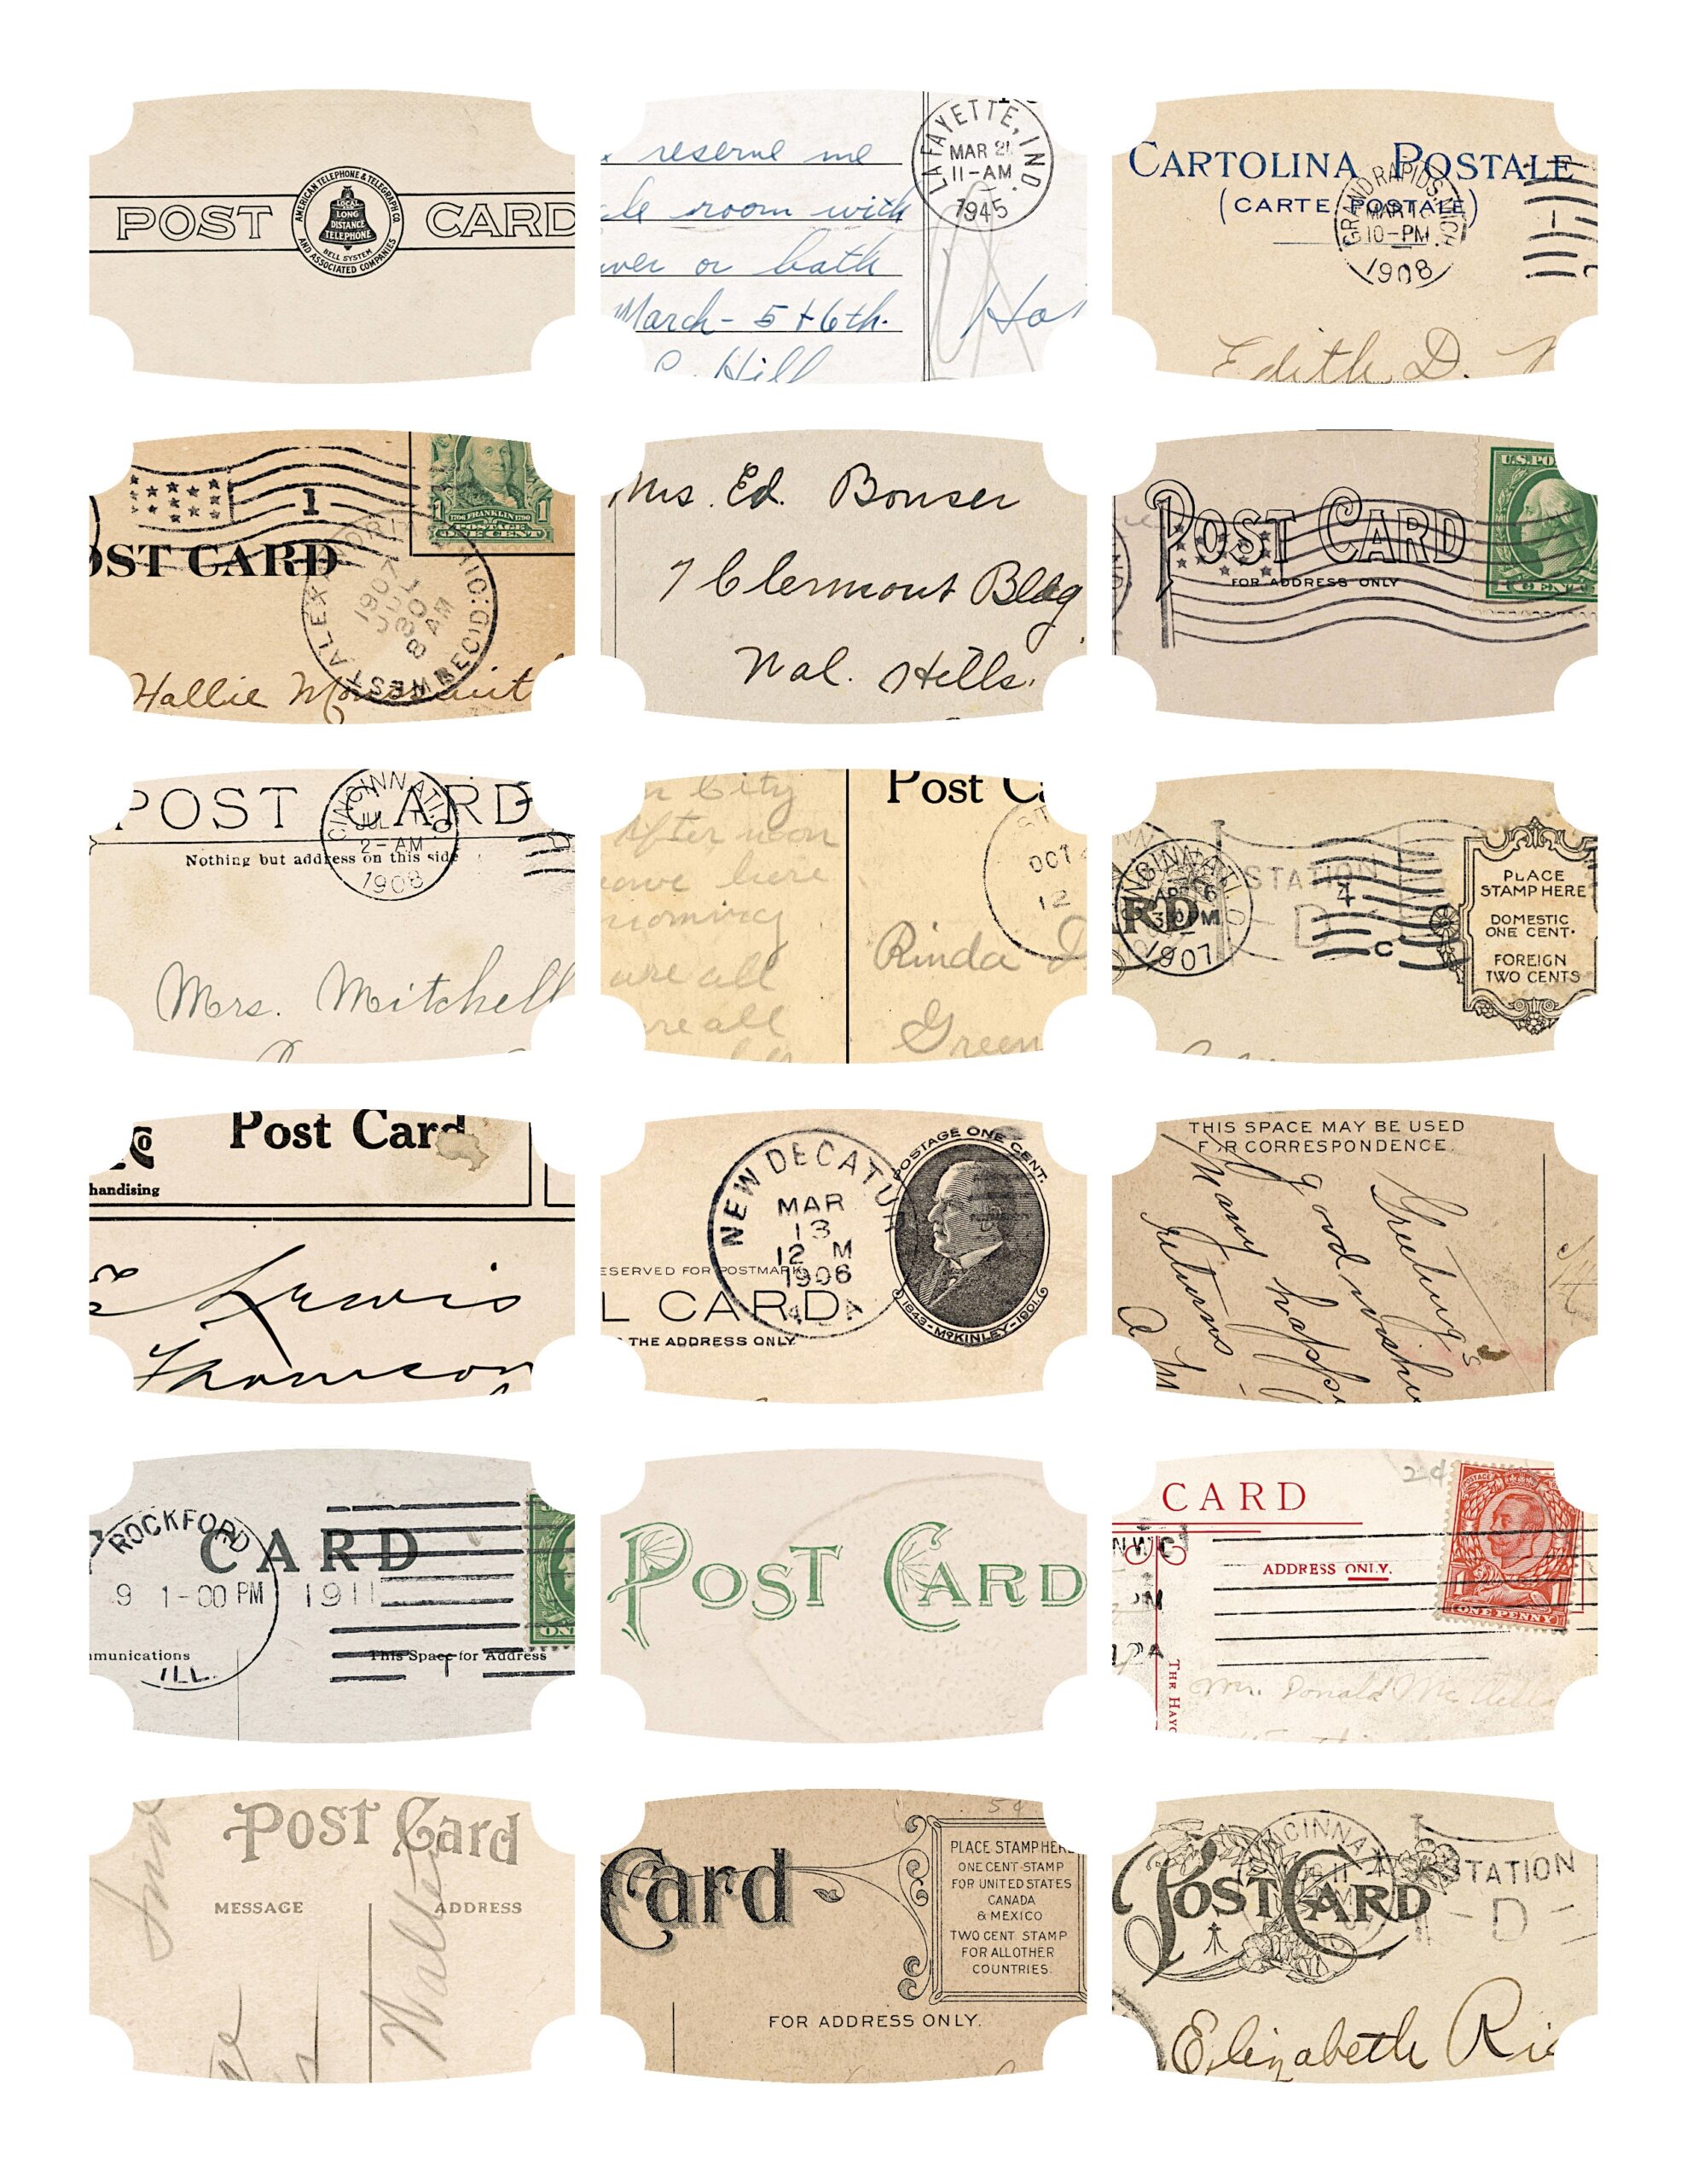 POST CARD
AMERICAN TELEPHONE & TELEGRAPH CO.
AND ASSOCIATED COMPANIES
LOCAL
LONG
DISTANCE
TELEPHONE
BELL SYSTEM
reserve me
room with
or bath
March - 5 + 6th.
Hill
LAFAYETTE, IND.
MAR 21
11-AM
1945
Ho
CARTOLINA POSTALE
(CARTE POSTALE)
GRAND RAPIDS, MICH.
MAR
10-PM
1908
Edith D.
1
OST CARD
1706 FRANKLIN 1790
1 POSTAGE 1
ONE CENT
1907
JUL
30
8 AM
WEST ALEXANDRIA, OHIO
REC'D.
Hallie
Mrs. Ed. Bonser
7 Clermont Bldg
Wal. Hills.
U.S. PO
POST CARD
FOR ADDRESS ONLY
POST CARD
CINCINNATI, O.
JUL
2-AM
1908
Nothing but address on this side
Mrs. Mitchell
City
After noon
here
morning
are all
all
Post Ca
OCT
12
Rinda
Green
CINCINNATI, O.
RD
6
PM
1907
STATION
D
4
C
PLACE
STAMP HERE
DOMESTIC
ONE CENT.
FOREIGN
TWO CENTS
Post Card
handising
Lewis
Thomson
NEW DECATUR
MAR
13
12 M
1906
POSTAGE ONE CENT.
1843-McKINLEY-1901.
ESERVED FOR POSTMARK
L CARD.
THE ADDRESS ONLY
THIS SPACE MAY BE USED
FOR CORRESPONDENCE.
Greetings
good wishes
Many happy
Returns
ROCKFORD
CARD
9 1-00 PM 1911
munications
ILL.
This Space for Address
POST CARD
24
CARD
ADDRESS ONLY.
POSTAGE
1 1
ONE PENNY
THE HAYC
Mr. Donald
Post Card
MESSAGE
ADDRESS
Walter
54
Card
PLACE STAMP HERE
ONE CENT STAMP
FOR UNITED STATES
CANADA
& MEXICO
TWO CENT STAMP
FOR ALL OTHER
COUNTRIES.
FOR ADDRESS ONLY.
CINCINNA
POST CARD
STATION
- D -
Elizabeth Ri